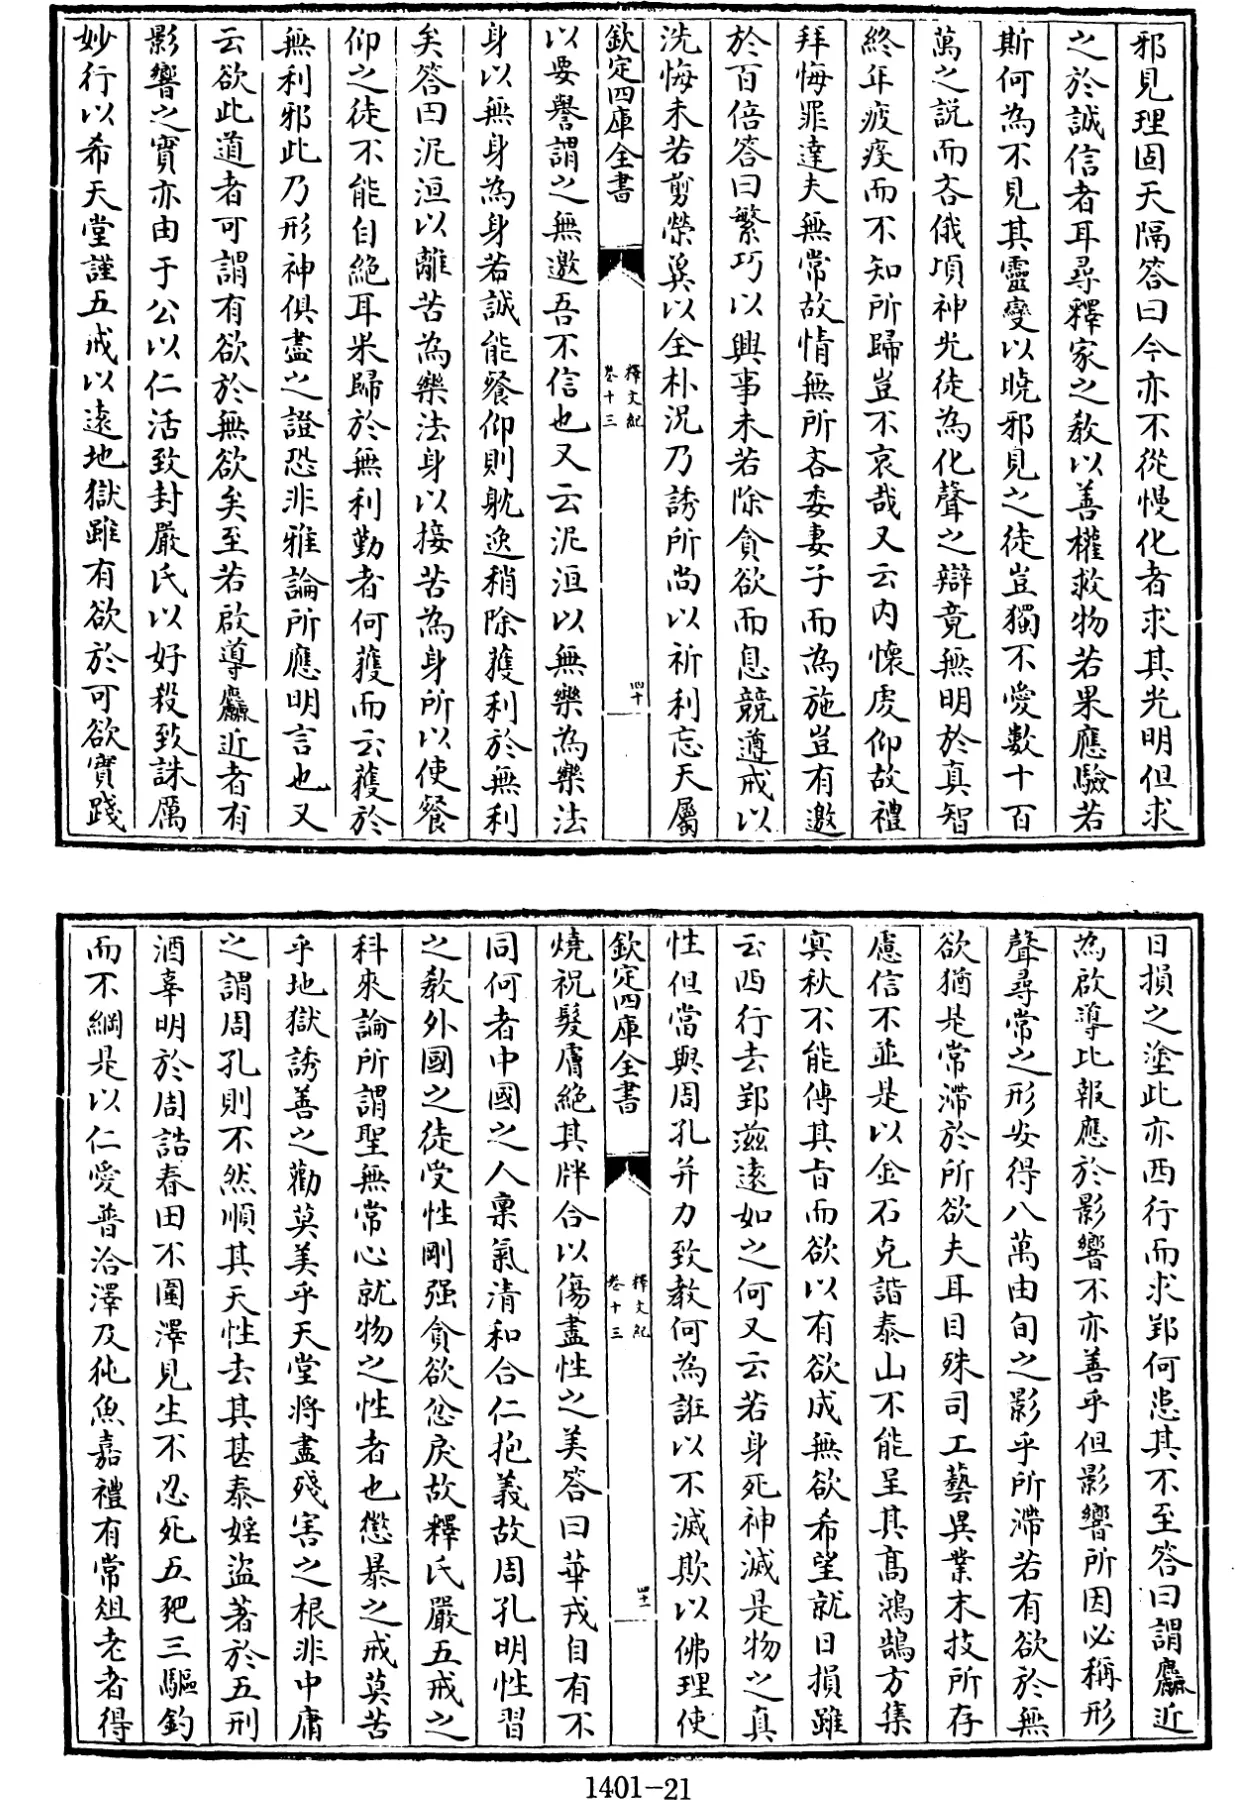 邪見理固天隔答曰今亦不從慢化者求其光明但求
之於誠信者耳尋釋家之教以善權救物若果應驗若
斯何為不見其靈變以曉邪見之徒豈獨不愛數十百
萬之説而吝俄頃神光徒為化聲之辯竟無明於真智
終年疲疫而不知所歸豈不哀哉又云内懐虔仰故禮
拜悔罪達夫無常故情無所吝委妻子而為施豈有邀
於百倍答曰繁巧以興事未若除貪欲而息競遵戒以
洗悔未若剪榮冀以全朴況乃誘所尚以祈利忘天屬
欽定四庫全書
釋文紀
卷十三
四十
以要譽謂之無邀吾不信也又云泥洹以無樂為樂法
身以無身為身若誠能餐仰則躭逸稍除獲利於無利
矣答曰泥洹以離苦為樂法身以接苦為身所以使餐
仰之徒不能自絶耳果歸於無利勤者何獲而云獲於
無利邪此乃形神俱盡之證恐非雅論所應明言也又
云欲此道者可謂有欲於無欲矣至若啟導麤近者有
影響之實亦由于公以仁活致封嚴氏以好殺致誅厲
妙行以希天堂謹五戒以逺地獄雖有欲於可欲實踐
日損之塗此亦西行而求郢何患其不至答曰謂麤近
為啟導比報應於影響不亦善乎但影響所因必稱形
聲尋常之形安得八萬由旬之影乎所滯若有欲於無
欲猶是常滯於所欲夫耳目殊司工藝異業末技所存
慮信不並是以金石克諧泰山不能呈其髙鴻鵠方集
㝠秋不能傳其旨而欲以有欲成無欲希望就日損雖
云西行去郢滋逺如之何又云若身死神滅是物之真
性但當與周孔并力致教何為誑以不滅欺以佛理使
欽定四庫全書
釋文紀
卷十三
四十一
燒祝髮膚絶其胖合以傷盡性之美答曰華戎自有不
同何者中國之人稟氣清和合仁抱義故周孔明性習
之教外國之徒受性剛强貪欲忿戾故釋氏嚴五戒之
科來論所謂聖無常心就物之性者也懲暴之戒莫苦
乎地獄誘善之勸莫美乎天堂將盡殘害之根非中庸
之謂周孔則不然順其天性去其甚泰婬盜著於五刑
酒辜明於周誥春田不圍澤見生不忍死五犯三驅釣
而不綱是以仁愛普洽澤及㹠魚嘉禮有常俎老者得
1401-21